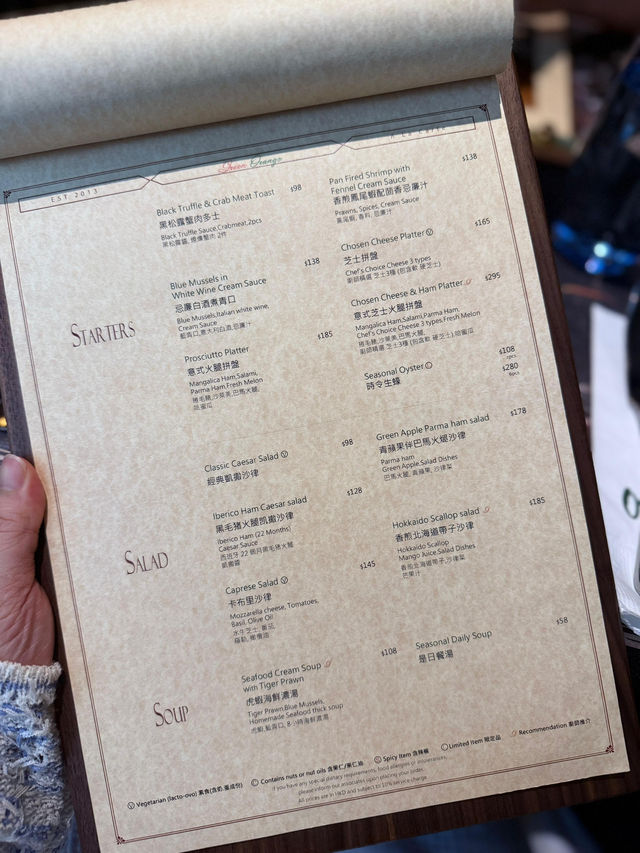 EST 2013
Queen Orange
Starters
Black Truffle & Crab Meat Toast $98
黑松露蟹肉多士
Black Truffle Sauce,Crabmeat,2pcs
Blue Mussels in $138
White Wine Cream Sauce
忌廉白酒煮青口
Blue Mussels,Italian white wine,
Cream Sauce
藍青口,意大利白酒,忌廉汁
Prosciutto Platter $185
意式火腿拼盤
Mangalica Ham,Salami,
Parma Ham,Fresh Melon
捲毛豬,沙萊美,巴馬火腿,
哈蜜瓜
Pan Fired Shrimp with $138
Fennel Cream Sauce
香煎鳳尾蝦配茴香忌廉汁
Prawns, Spices, Cream Sauce
鳳尾蝦, 香料, 忌廉汁
Chosen Cheese Platter Ⓥ $165
芝士拼盤
Chef's Choice Cheese 3 types
廚師精選 芝士3種 (包含軟 硬芝士)
Chosen Cheese & Ham Platter $295
意式芝士火腿拼盤
Mangalica Ham,Salami,Parma Ham
Chef's Choice Cheese 3 types,Fresh Melon
捲毛豬,沙萊美,巴馬火腿,
廚師精選 芝士3種 (包含軟 硬芝士),哈蜜瓜
Seasonal Oyster $108
時令生蠔 2pcs
$280
6pcs
Salad
Classic Caesar Salad Ⓥ $98
經典凱撒沙律
Iberico Ham Caesar salad $128
黑毛豬火腿凱撒沙律
Iberico Ham (22 Months)
Caesar Sauce
西班牙 22 個月黑毛豬火腿
凱撒醬
Caprese Salad Ⓥ $145
卡布里沙律
Mozzarella cheese, Tomatoes,
Basil, Olive Oil
水牛芝士, 番茄,
羅勒, 橄欖油
Green Apple Parma ham salad $178
青蘋果伴巴馬火腿沙律
Parma ham
Green Apple,Salad Dishes
巴馬火腿, 青蘋果, 沙律菜
Hokkaido Scallop salad $185
香煎北海道帶子沙律
Hokkaido Scallop
Mango Juice,Salad Dishes
香煎北海道帶子,沙律菜
芒果汁
Soup
Seafood Cream Soup $108
with Tiger Prawn
虎蝦海鮮濃湯
Tiger Prawn,Blue Mussels,
Homemade Seafood thick soup
虎蝦,藍青口, 8小時海鮮濃湯
Seasonal Daily Soup $58
是日餐湯
Ⓥ Vegetarian (lacto-ovo) 素食(含奶,蛋成份) Ⓒ Contains nuts or nut oils 含果仁/果仁油 Ⓢ Spicy Item 含辣椒 Ⓛ Limited Item 限定品 Recommendation 廚師推介
If you have any special dietary requirements, food allergies or intolerances,
please inform our associates upon placing your order.
All prices are in HKD and subject to 10% service charge